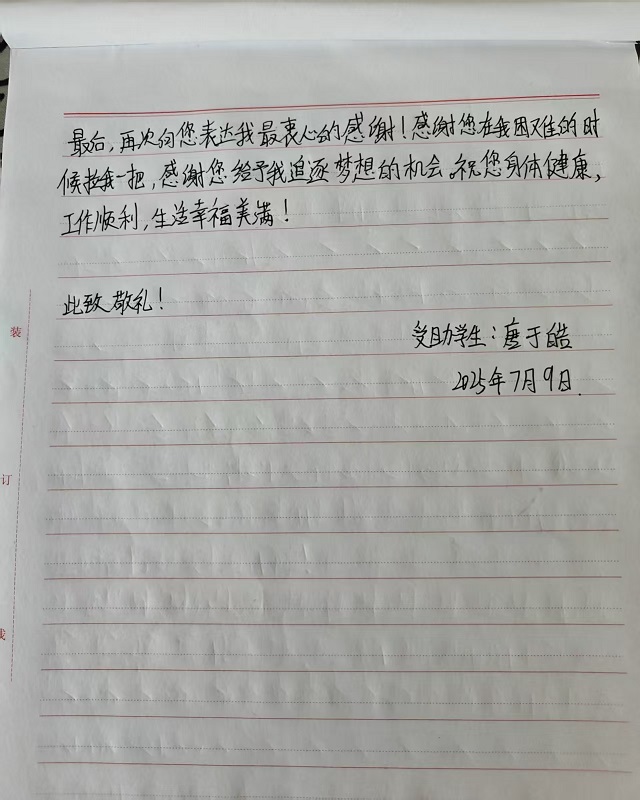 最后，再次向您表达我最衷心的感谢！感谢您在我困难的时
候拉我一把，感谢您给予我追逐梦想的机会。祝您身体健康，
工作顺利，生活幸福美满！
此致敬礼！
受助学生：唐于皓
2025年7月9日.
装
订
线